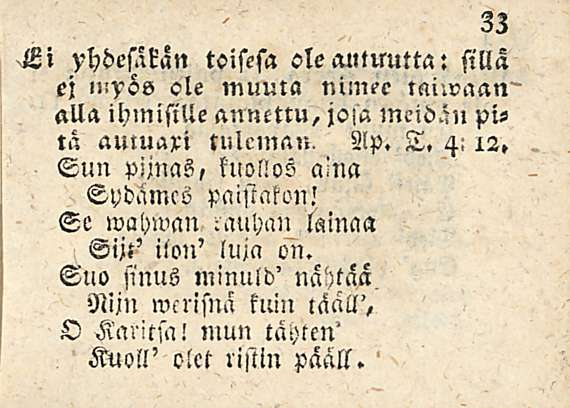 33
Ei yhdesäkän toisesa ole autuutta: sillä
ej myös ole muuta nimee taiwaan
alla ihmisille annettu, josa meidän pi⸗
tä autuaxi tuleman. Ap. T. 4: 12.
Sun pijnas, kuollos aina
Sydämes paistakon!
Se wahwan rauhan lainaa
Sijt' ilon' luja on.
Suo sinus minuld' nähtää
Nijn werisnä kuin tääll',
O Karitsa! mun tähten'
Kuoll' olet ristin pääll.